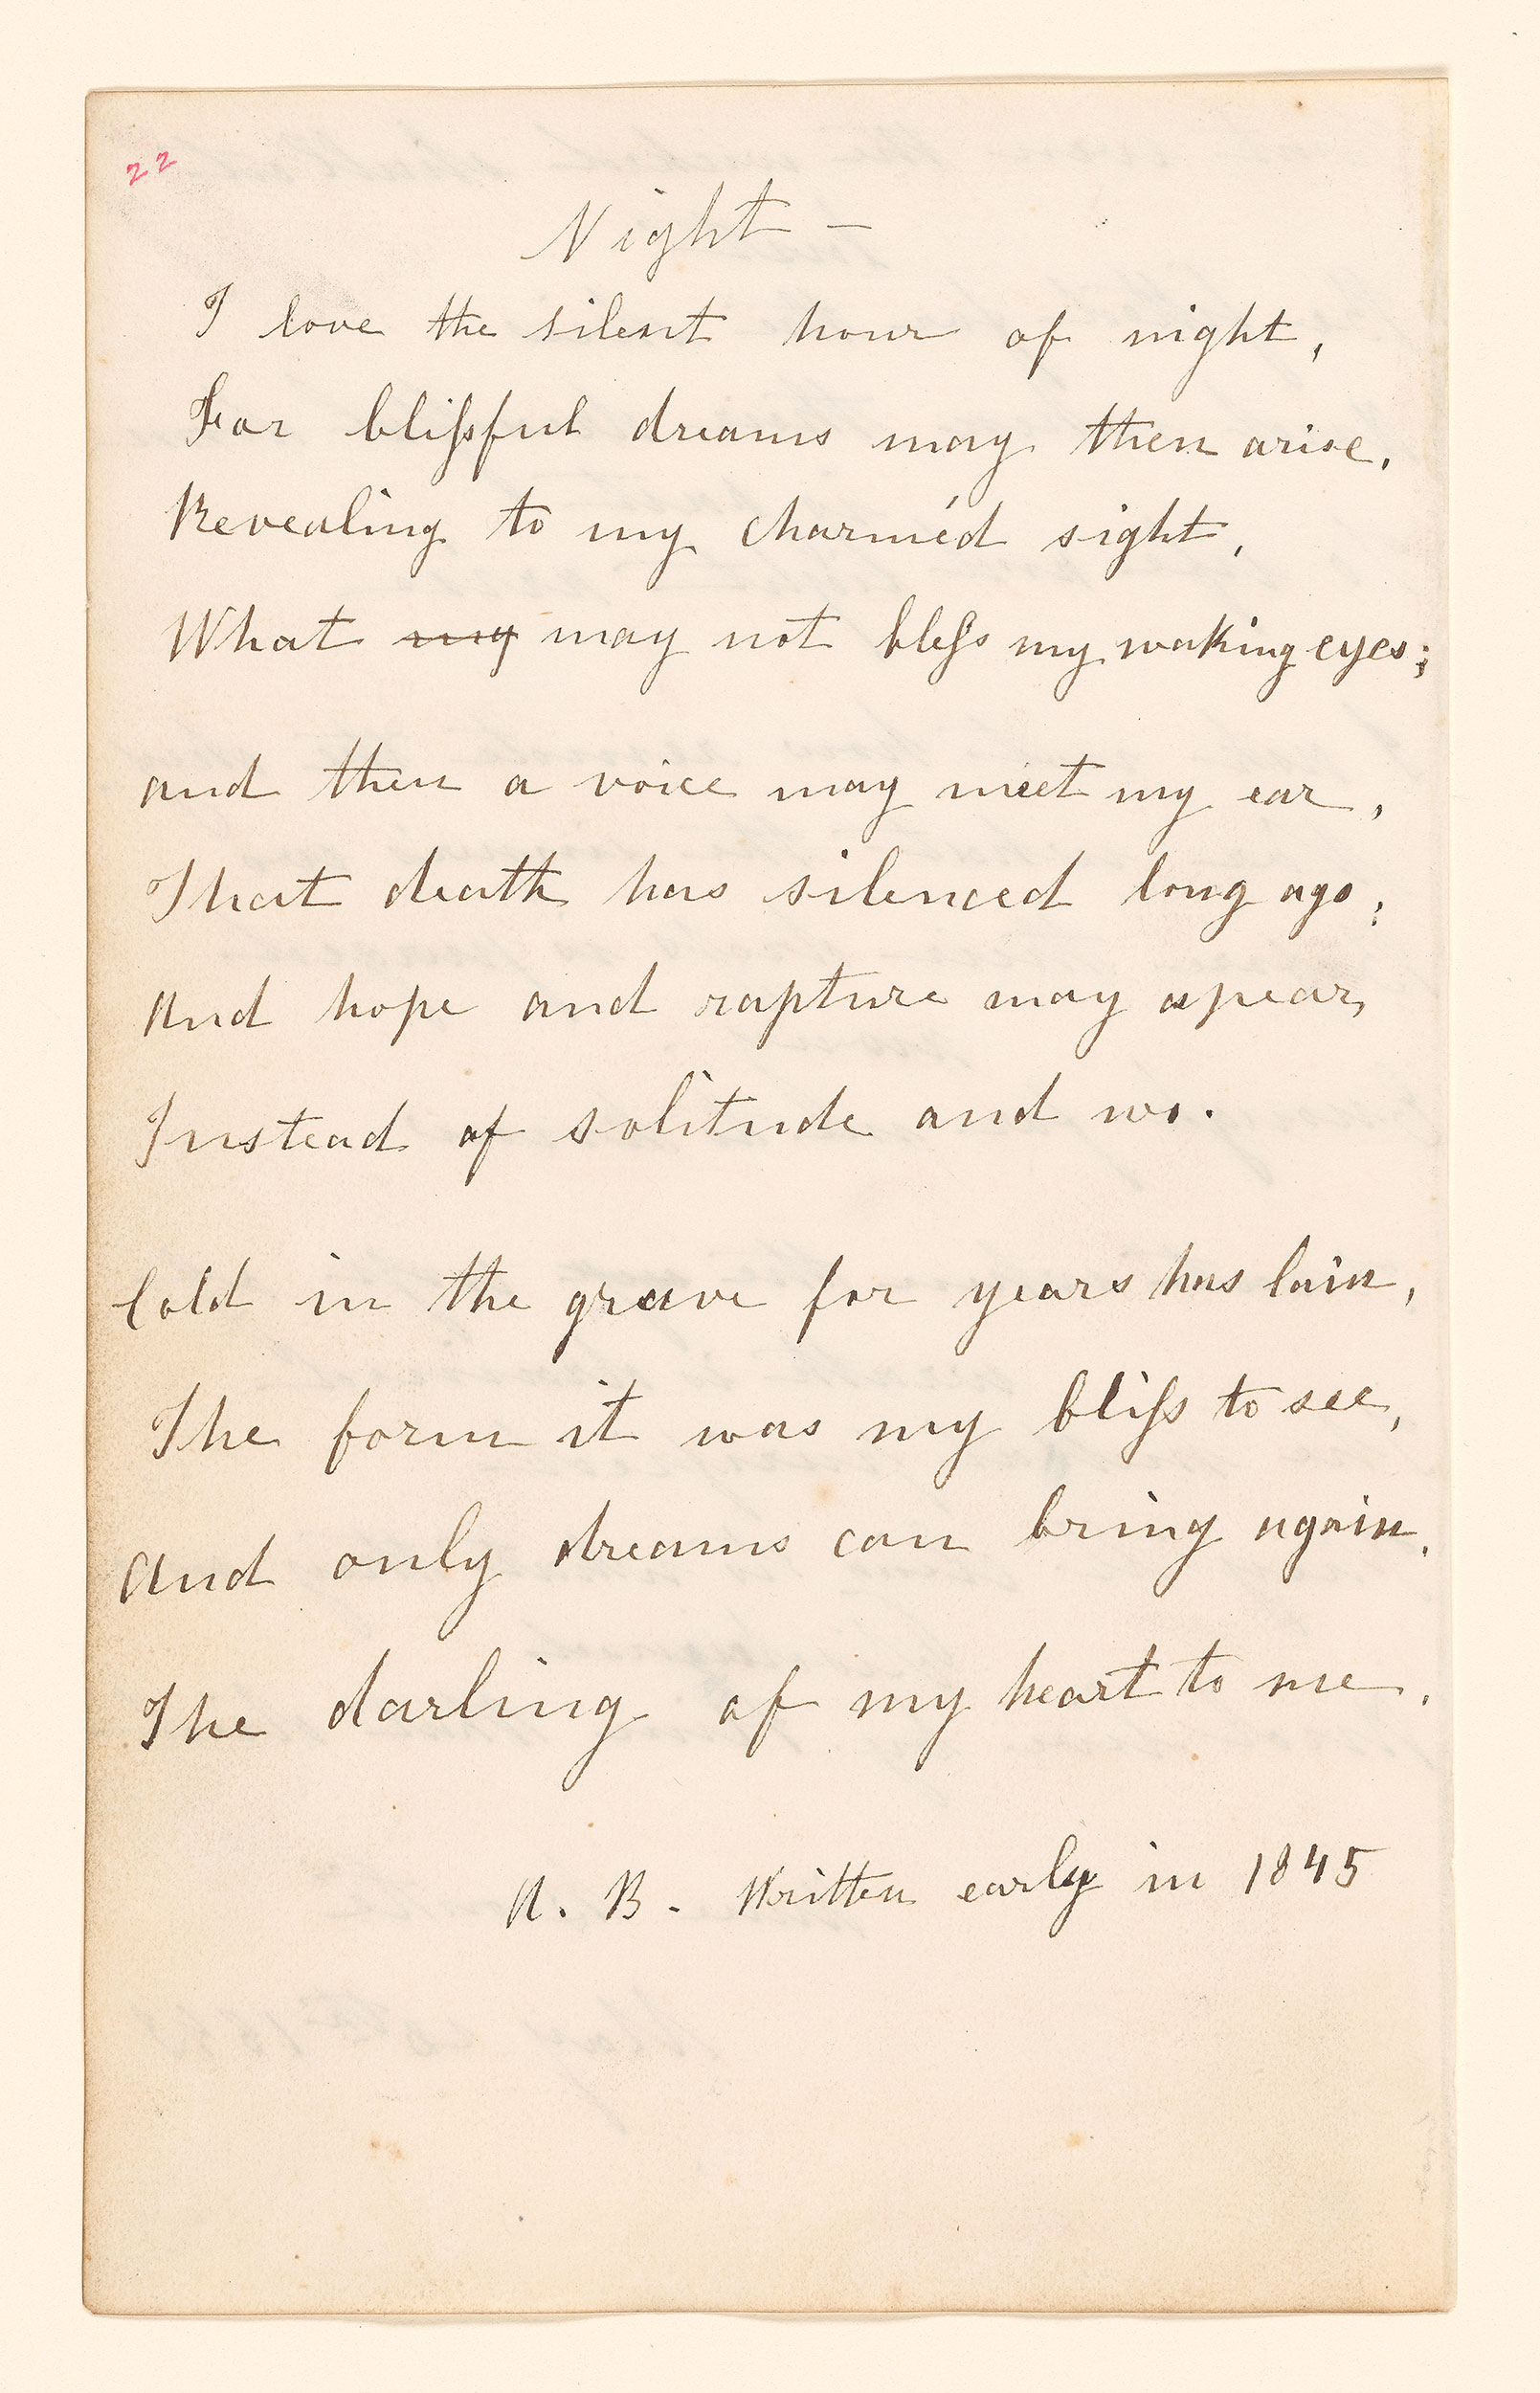 22
Night —
I love the silent hour of night,
For blissful dreams may then arise,
Revealing to my charméd sight,
What my may not bless my waking eyes;
And then a voice may meet my ear,
That death has silenced long ago;
And hope and rapture may apear,
Instead of solitude and wo.
Cold in the grave for years has lain,
The form it was my bliss to see,
And only dreams can bring again,
The darling of my heart to me.
A. B. Written early in 1845